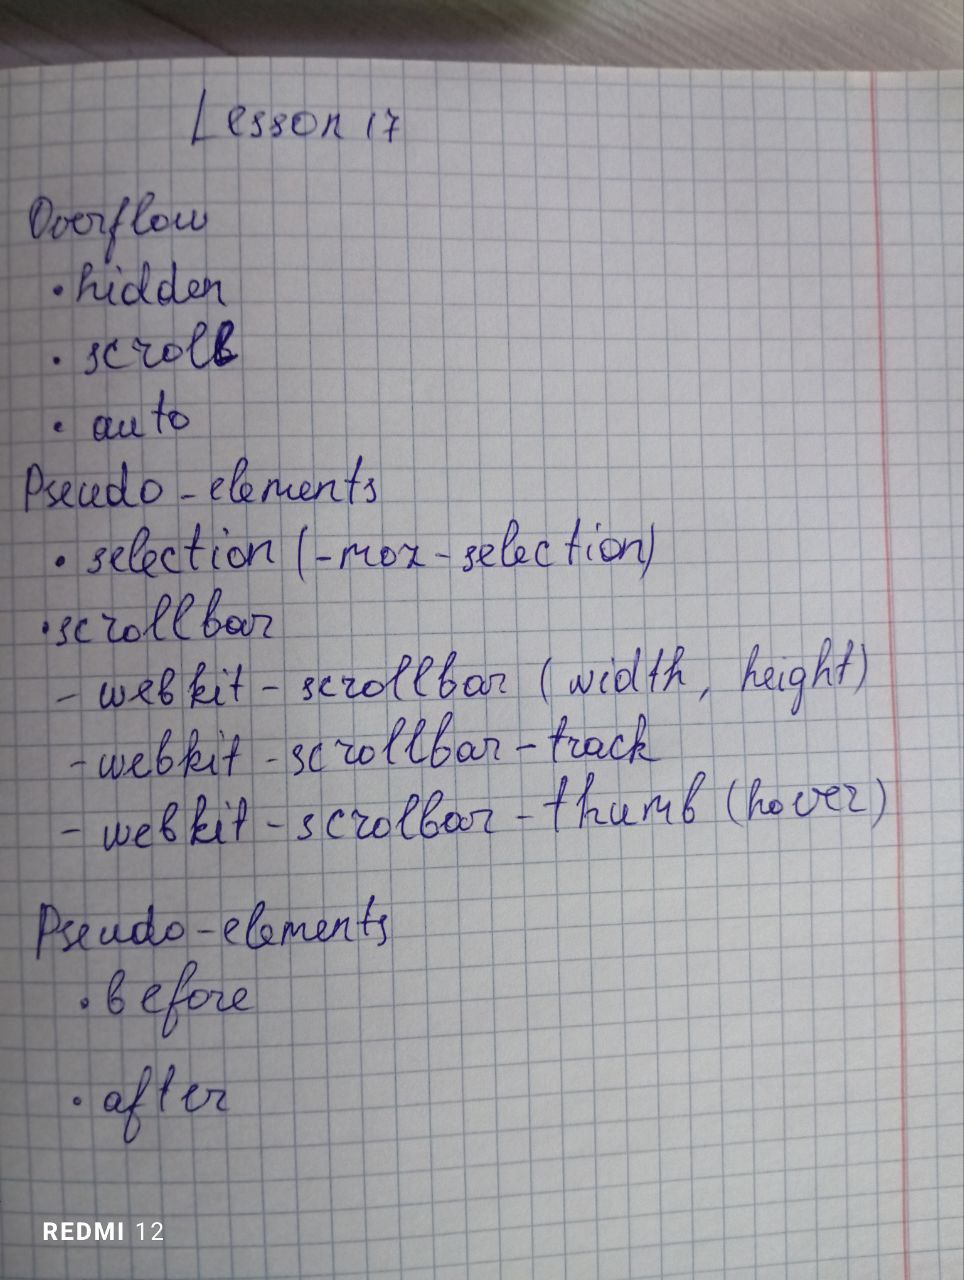 Lesson 17
Overflow
• hidden
• scroll
• auto
Pseudo-elements
• selection (-moz-selection)
• scrollbar
- webkit-scrollbar (width, height)
- webkit-scrollbar-track
- webkit-scrolbar-thumb (hover)
Pseudo-elements
• before
• after
REDMI 12